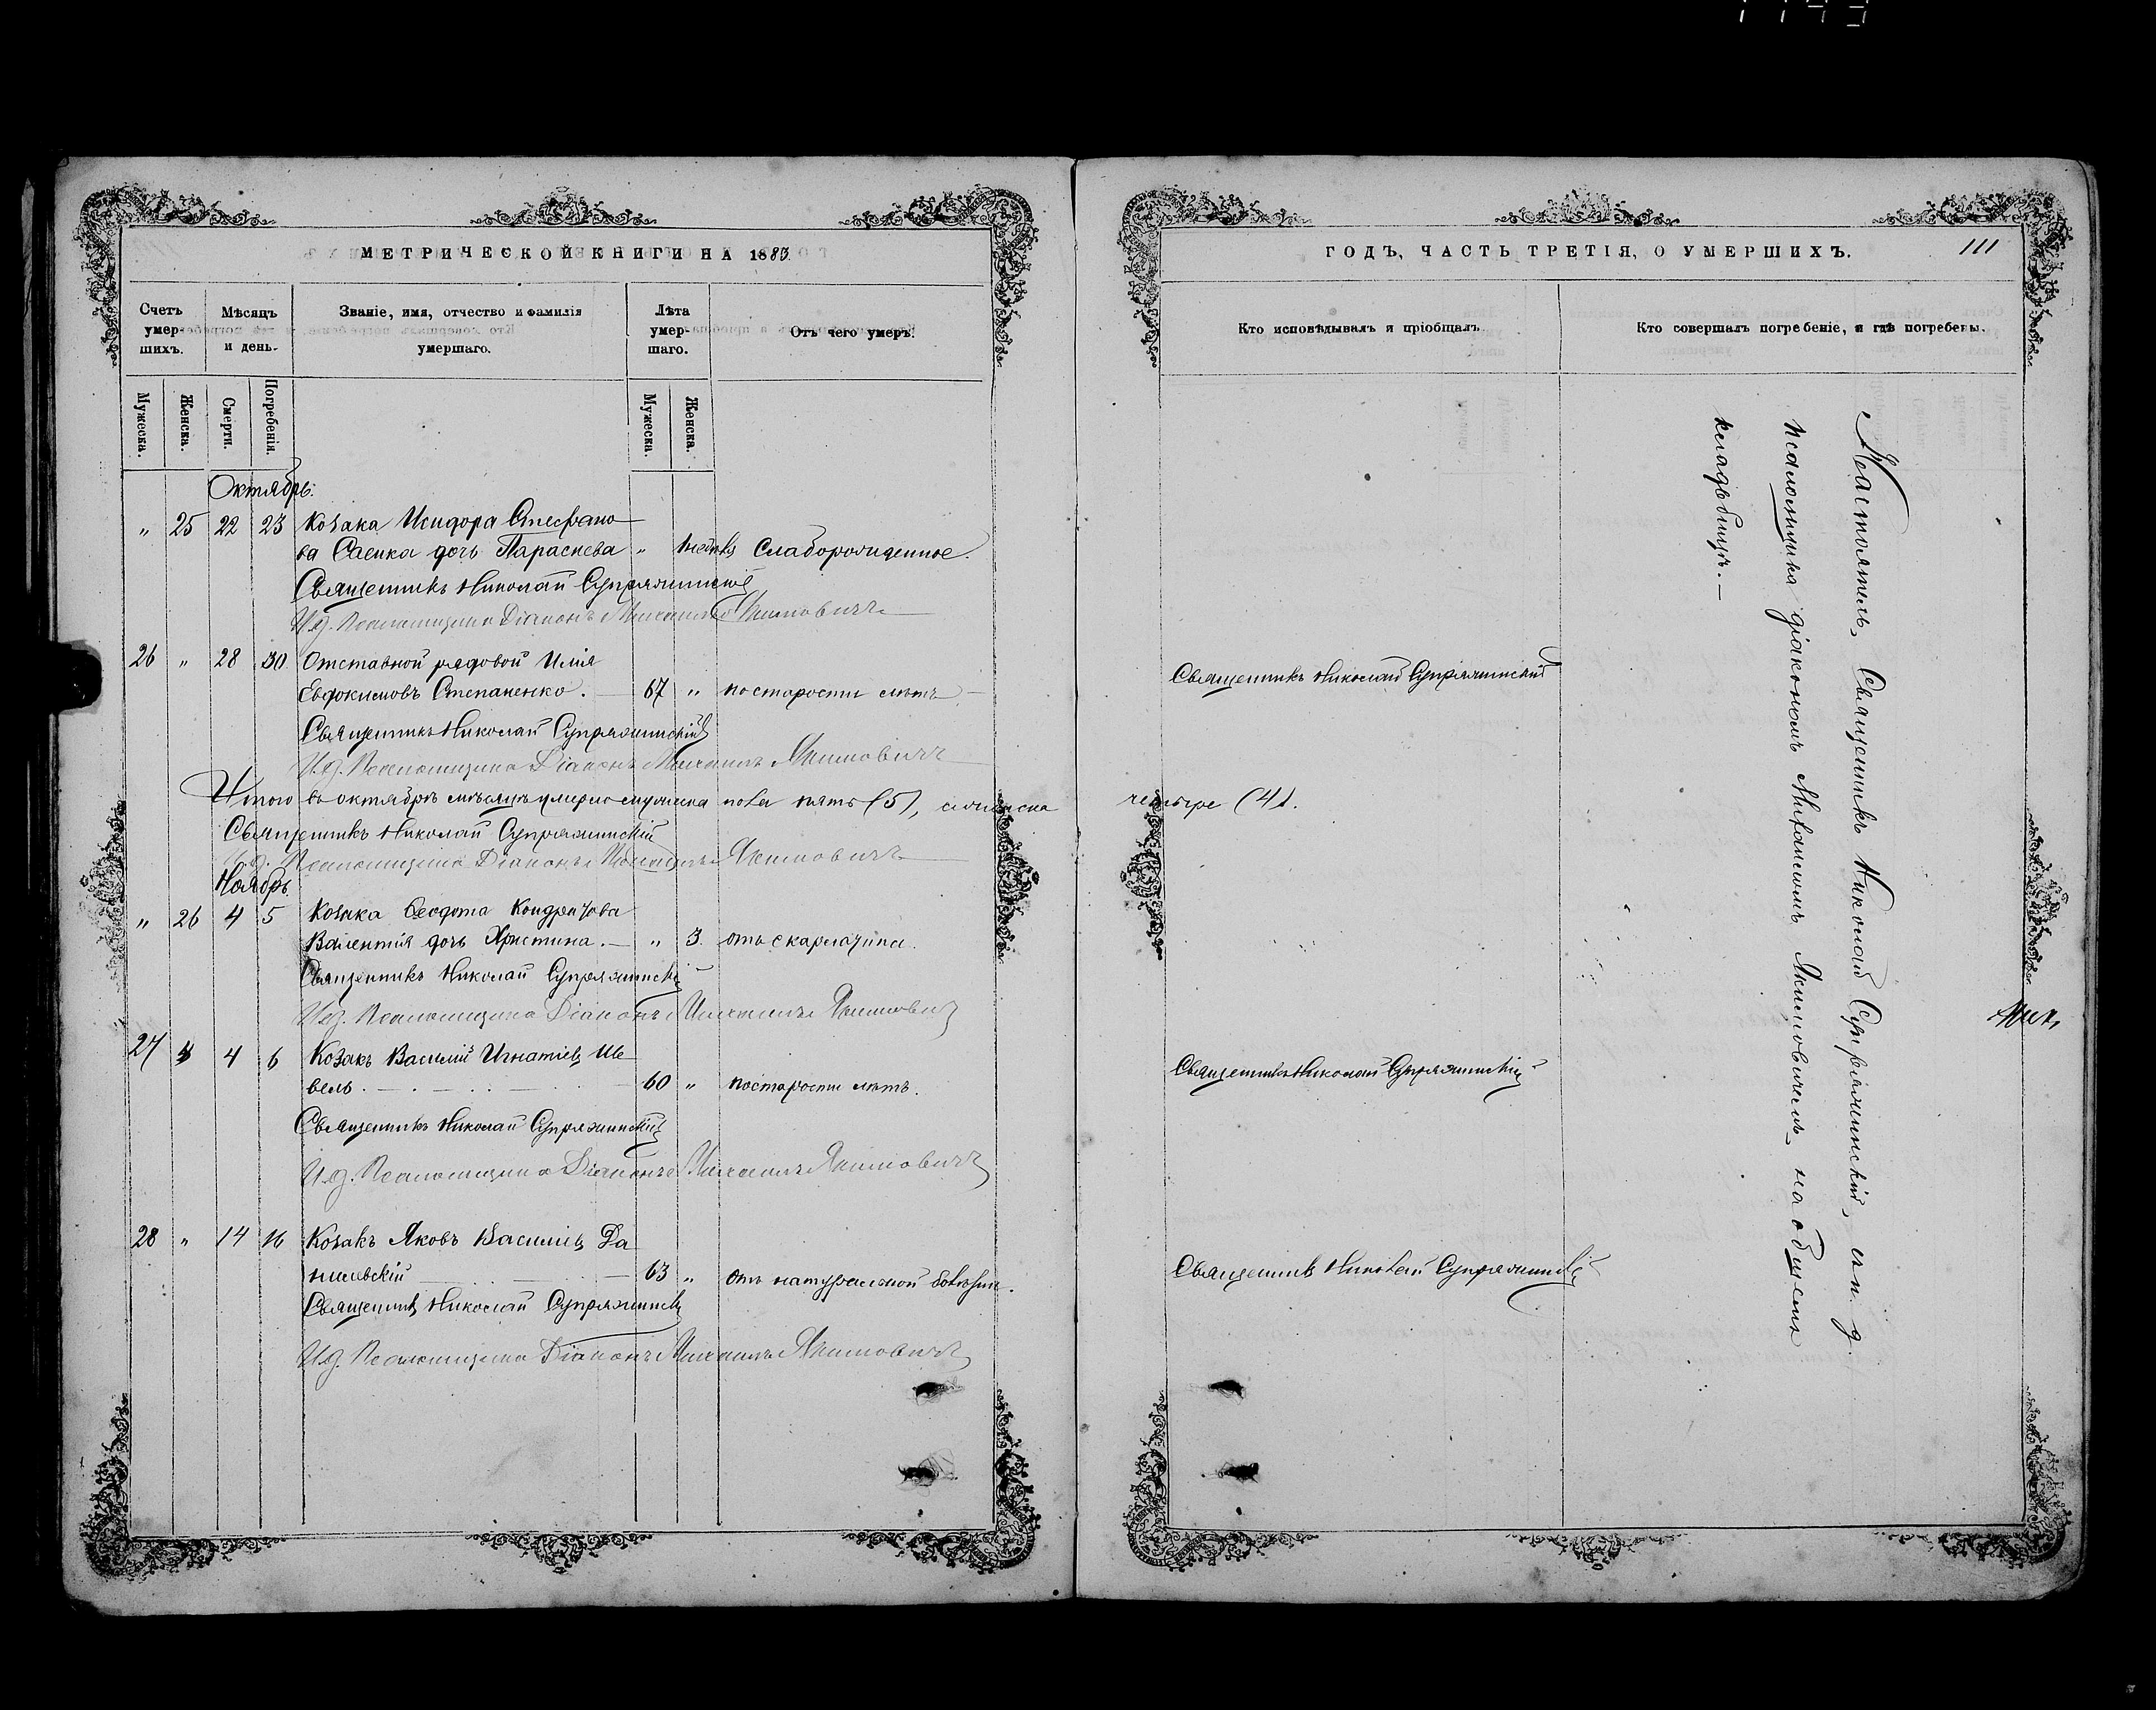 МЕТРИЧЕСКОЙ КНИГИ НА 1883
Счетъ умер- шихъ.
Мѣсяцъ и день.
Званіе, имя, отчество и фамилія умершаго.
Лѣта умер- шаго.
Отъ чего умеръ.
Мужеска.
Женска.
Смерти.
Погребенія.
Мужеска.
Женска.
Октябрь.
" 25 22 23 Козака Исидора Стефано
ва Саенка дочь Параскева " слаборожденное.
Священникъ Николай Супряжинскій
И.д. Псаломщика Діаконъ Михаилъ Якимовичъ
26 " 28 30 Отставной рядовой Илія
Евфокимовъ Степаненко. 67 " по старости лѣтъ
Священникъ Николай Супряжинскій
И.д. Псаломщика Діаконъ Михаилъ Якимовичъ
Итого въ октябрѣ мѣсяцѣ умерло мужеска пола пять (5), женска
Священникъ Николай Супряжинскій
И.д. Псаломщика Діаконъ Михаилъ Якимовичъ
Ноябрь
" 26 4 5 Козака Феодота Кондратова
дочь Христина. " 3. отъ скарлатины.
Священникъ Николай Супряжинскій
И.д. Псаломщика Діаконъ Михаилъ Якимовичъ
27 " 4 6 Козакъ Василій Игнатіевъ Ше
вель 60 " по старости лѣтъ.
Священникъ Николай Супряжинскій
И.д. Псаломщика Діаконъ Михаилъ Якимовичъ
28 " 14 16 Козакъ Яковъ Василіевъ Да
нилевскій 63 " отъ натуральной болѣзни.
Священникъ Николай Супряжинскій
И.д. Псаломщика Діаконъ Михаилъ Якимовичъ
ГОДЪ, ЧАСТЬ ТРЕТІЯ, О УМЕРШИХЪ.
111
Кто исповѣдывалъ и пріобщалъ.
Кто совершалъ погребеніе, и гдѣ погребены.
Священникъ Николай Супряжинскій
четыре (4).
Священникъ Николай Супряжинскій
Священникъ Николай Супряжинскій
Настоятель, Священникъ Николай Супряжинскій, съ и. д.
псаломщика діакономъ Михаиломъ Якимовичемъ, на общемъ
кладбищѣ.